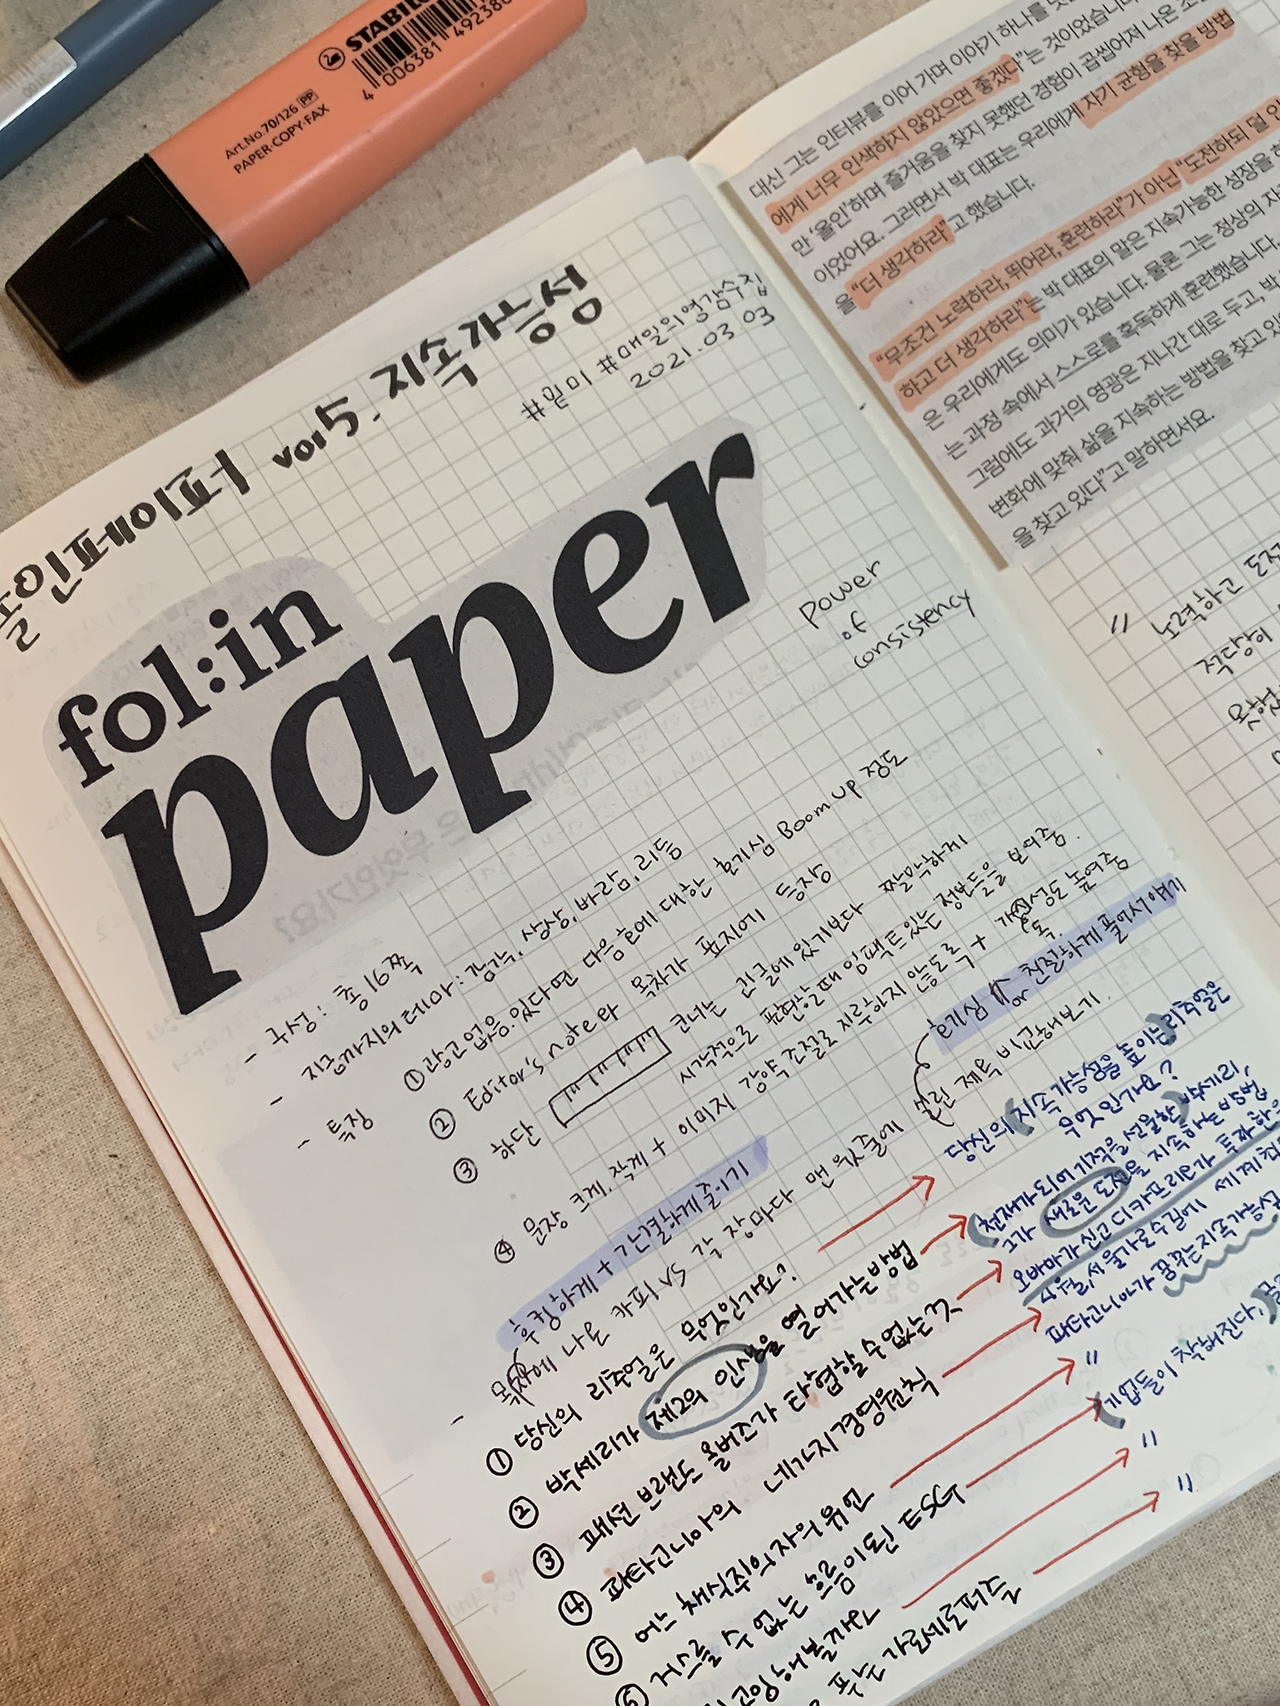 STABILO
4 006381 492386
Art.No.70/126 PP
PAPER·COPY·FAX
폴인페이퍼 vol5. 지속가능성
#월미 #매일의영감수집
2021.03.03
fol:in
paper
power
of
consistency
- 구성 : 총 16쪽
- 지금까지의 테마 : 감각, 상상, 바람, 리듬
- 특징 ① 광고 없음. 있다면 다음 호에 대한 호기심 Boom up 정도
② Editor's note와 목차가 표지에 등장
③ 하단 코너는 긴글에 있기보다 짤막하게
시각적으로 표현할 때 임팩트 있는 정보들을 보여줌.
④ 문장 크게, 작게 + 이미지 강약 조절로 지루하지 않도록 + 가독성도 높여줌
후킹하게 + 간결하게 줄이기
호기심 ⇈ or 친절하게 풀어서 얘기
- 목차에 나온 카피 vs 각 장마다 맨 윗줄에 달린 제목 비교해보기.
① 당신의 리추얼은 무엇인가요?
당신의 지속가능성을 높이는 리추얼은
무엇인가요?
② 박세리가 제2의 인생을 열어가는 방법
천재가 되어 기적을 선물한 박세리,
그가 새로운 도전을 지속하는 방법
③ 패션 브랜드 올버즈가 타협할 수 없는 것
오바마가 신고 디카프리오가 투자한
④ 파타고니아의 네가지 경영원칙
파타고니아가 꿈꾸는 지속가능성
⑤ 어느 채식주의자의 유언
"
⑥ 거스를 수 없는 흐름이 된 ESG
기업들이 착해진다,
"
푸는 가로세로퍼즐
"
대신 그는 인터뷰를 이어 가며 이야기 하나를
에게 너무 인색하지 않았으면 좋겠다"는 것이었습니다
만 '올인'하며 즐거움을 찾지 못했던 경험이 곱씹어져 나온
이었어요. 그러면서 박 대표는 우리에게 자기 균형을 찾을 방법
을 "더 생각하라"고 했습니다.
"무조건 노력하라, 뛰어라, 훈련하라"가 아닌 "도전하되 덜
하고 더 생각하라"는 박 대표의 말은 지속가능한 성장을
은 우리에게도 의미가 있습니다. 물론 그는 정상의
는 과정 속에서 스스로를 혹독하게 훈련했습니다.
그럼에도 과거의 영광은 지나간 대로 두고, 박
변화에 맞춰 삶을 지속하는 방법을 찾고
을 찾고 있다"고 말하면서요.
" 노력하고
적당히